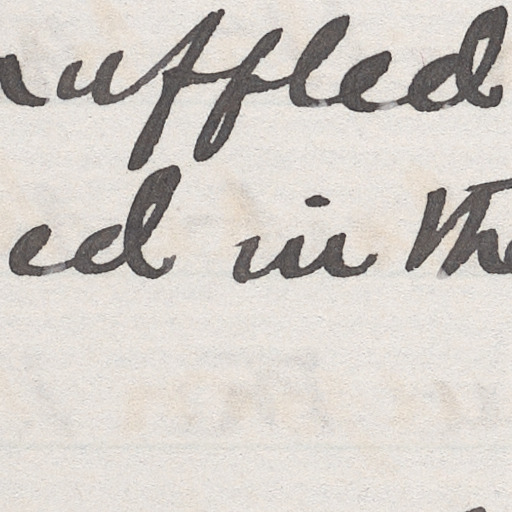 uffled
ed in the